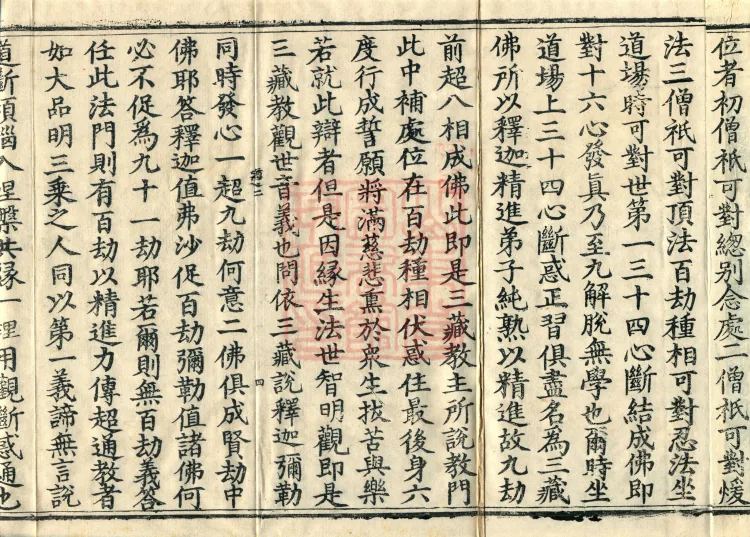 位者初僧祇可對總別念處二僧祇可對煖
法三僧祇可對頂法百劫種相可對忍法坐
道場時可對世第一三十四心斷結成佛即
對十六心發真乃至九解脫無學也爾時坐
道場上三十四心斷惑正習俱盡名為三藏
佛所以釋迦精進弟子純熟以精進故九劫
前超八相成佛此即是三藏教主所說教門
此中補處位在百劫種相伏惑住最後身六
度行成誓願將滿慈悲熏於眾生拔苦與樂
若就此辯者但是因緣生法世智明觀即是
三藏教觀世音義也問依三藏說釋迦彌勒
四
同時發心一超九劫何意二佛俱成賢劫中
佛耶答釋迦值弗沙促百劫彌勒值諸佛何
必不促為九十一劫耶若爾則無百劫義答
任此法門則有百劫以精進力傳超通教者
如大品明三乘之人同以第一義諦無言說
道斷煩惱入涅槃共緣一理用觀斷惑通也